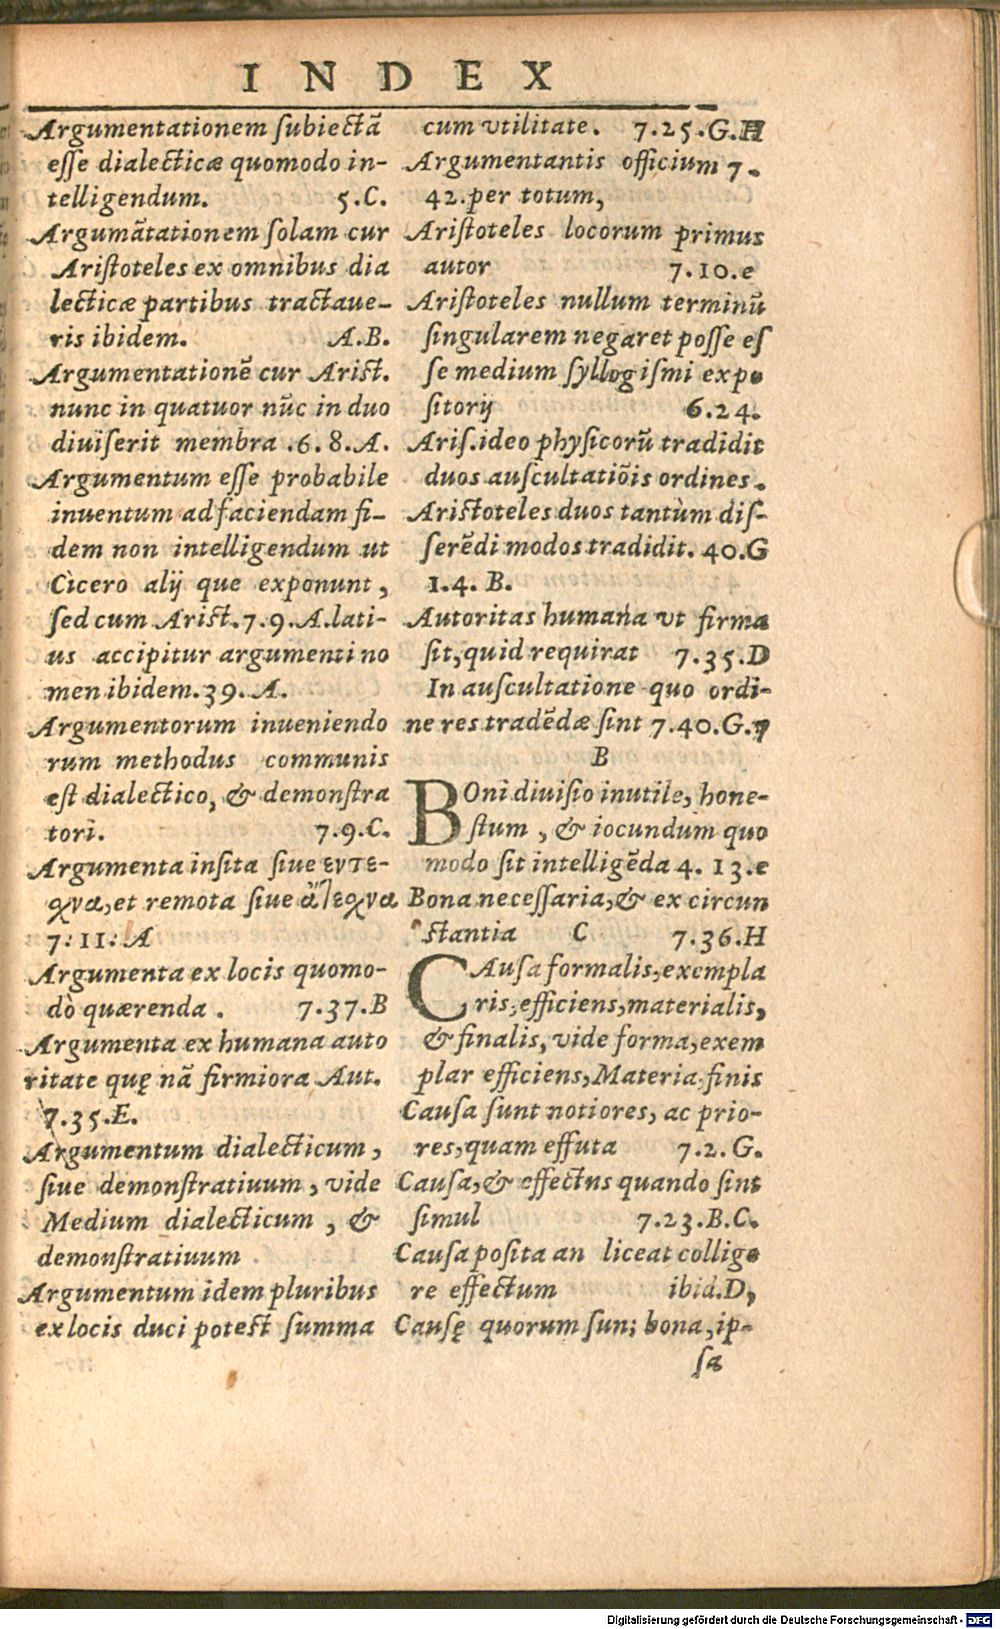 INDEX
Argumentationem ſubiectã
eſſe dialecticæ quomodo in-
telligendum. 5.C.
Argumãtationem ſolam cur
Ariſtoteles ex omnibus dia
lecticæ partibus tractaue-
ris ibidem. A.B.
Argumentationẽ cur Ariſt.
nunc in quatuor nũc in duo
diuiſerit membra .6.8.A.
Argumentum eſſe probabile
inuentum ad faciendam fi-
dem non intelligendum ut
Cicero alij que exponunt,
ſed cum Ariſt.7.9.A.lati-
us accipitur argumenti no
men ibidem.39.A.
Argumentorum inueniendo
rum methodus communis
eſt dialectico, & demonſtra
tori. 7.9.C.
Argumenta inſita ſiue εντε-
χνα, et remota ſiue ἄτεχνα
7:11:A
Argumenta ex locis quomo-
dò quærenda. 7.37.B
Argumenta ex humana auto
ritate quę nã firmiora Aut.
7.35.E.
Argumentum dialecticum,
ſiue demonſtratiuum, vide
Medium dialecticum, &
demonſtratiuum
Argumentum idem pluribus
ex locis duci poteſt ſumma
cum vtilitate. 7.25.G.H
Argumentantis officium 7.
42.per totum,
Ariſtoteles locorum primus
autor 7.10.e
Ariſtoteles nullum terminũ
ſingularem negaret poſſe eſ
ſe medium ſyllogiſmi expo
ſitorij 6.24.
Ariſ.ideo phyſicorũ tradidit
duos auſcultatiõis ordines.
Ariſtoteles duos tantùm diſ-
ſerẽdi modos tradidit. 40.G
1.4. B.
Autoritas humana vt firma
ſit, quid requirat 7.35.D
In auſcultatione quo ordi-
ne res tradẽdæ ſint 7.40.G.7
B
BOni diuiſio inutile, hone-
ſtum, & iocundum quo
modo ſit intelligẽda 4. 13.e
Bona neceſſaria, & ex circun
ſtantia C 7.36.H
CAuſa formalis, exempla
ris, efficiens, materialis,
& finalis, vide forma, exem
plar efficiens, Materia finis
Cauſa ſunt notiores, ac prio-
res, quam effuta 7.2.G.
Cauſa, & effectus quando ſint
ſimul 7.23.B.C.
Cauſa poſita an liceat collige
re effectum ibid.D,
Cauſę quorum ſunt bona, ip-
ſæ
Digitalisierung gefördert durch die Deutsche Forschungsgemeinschaft - DFG